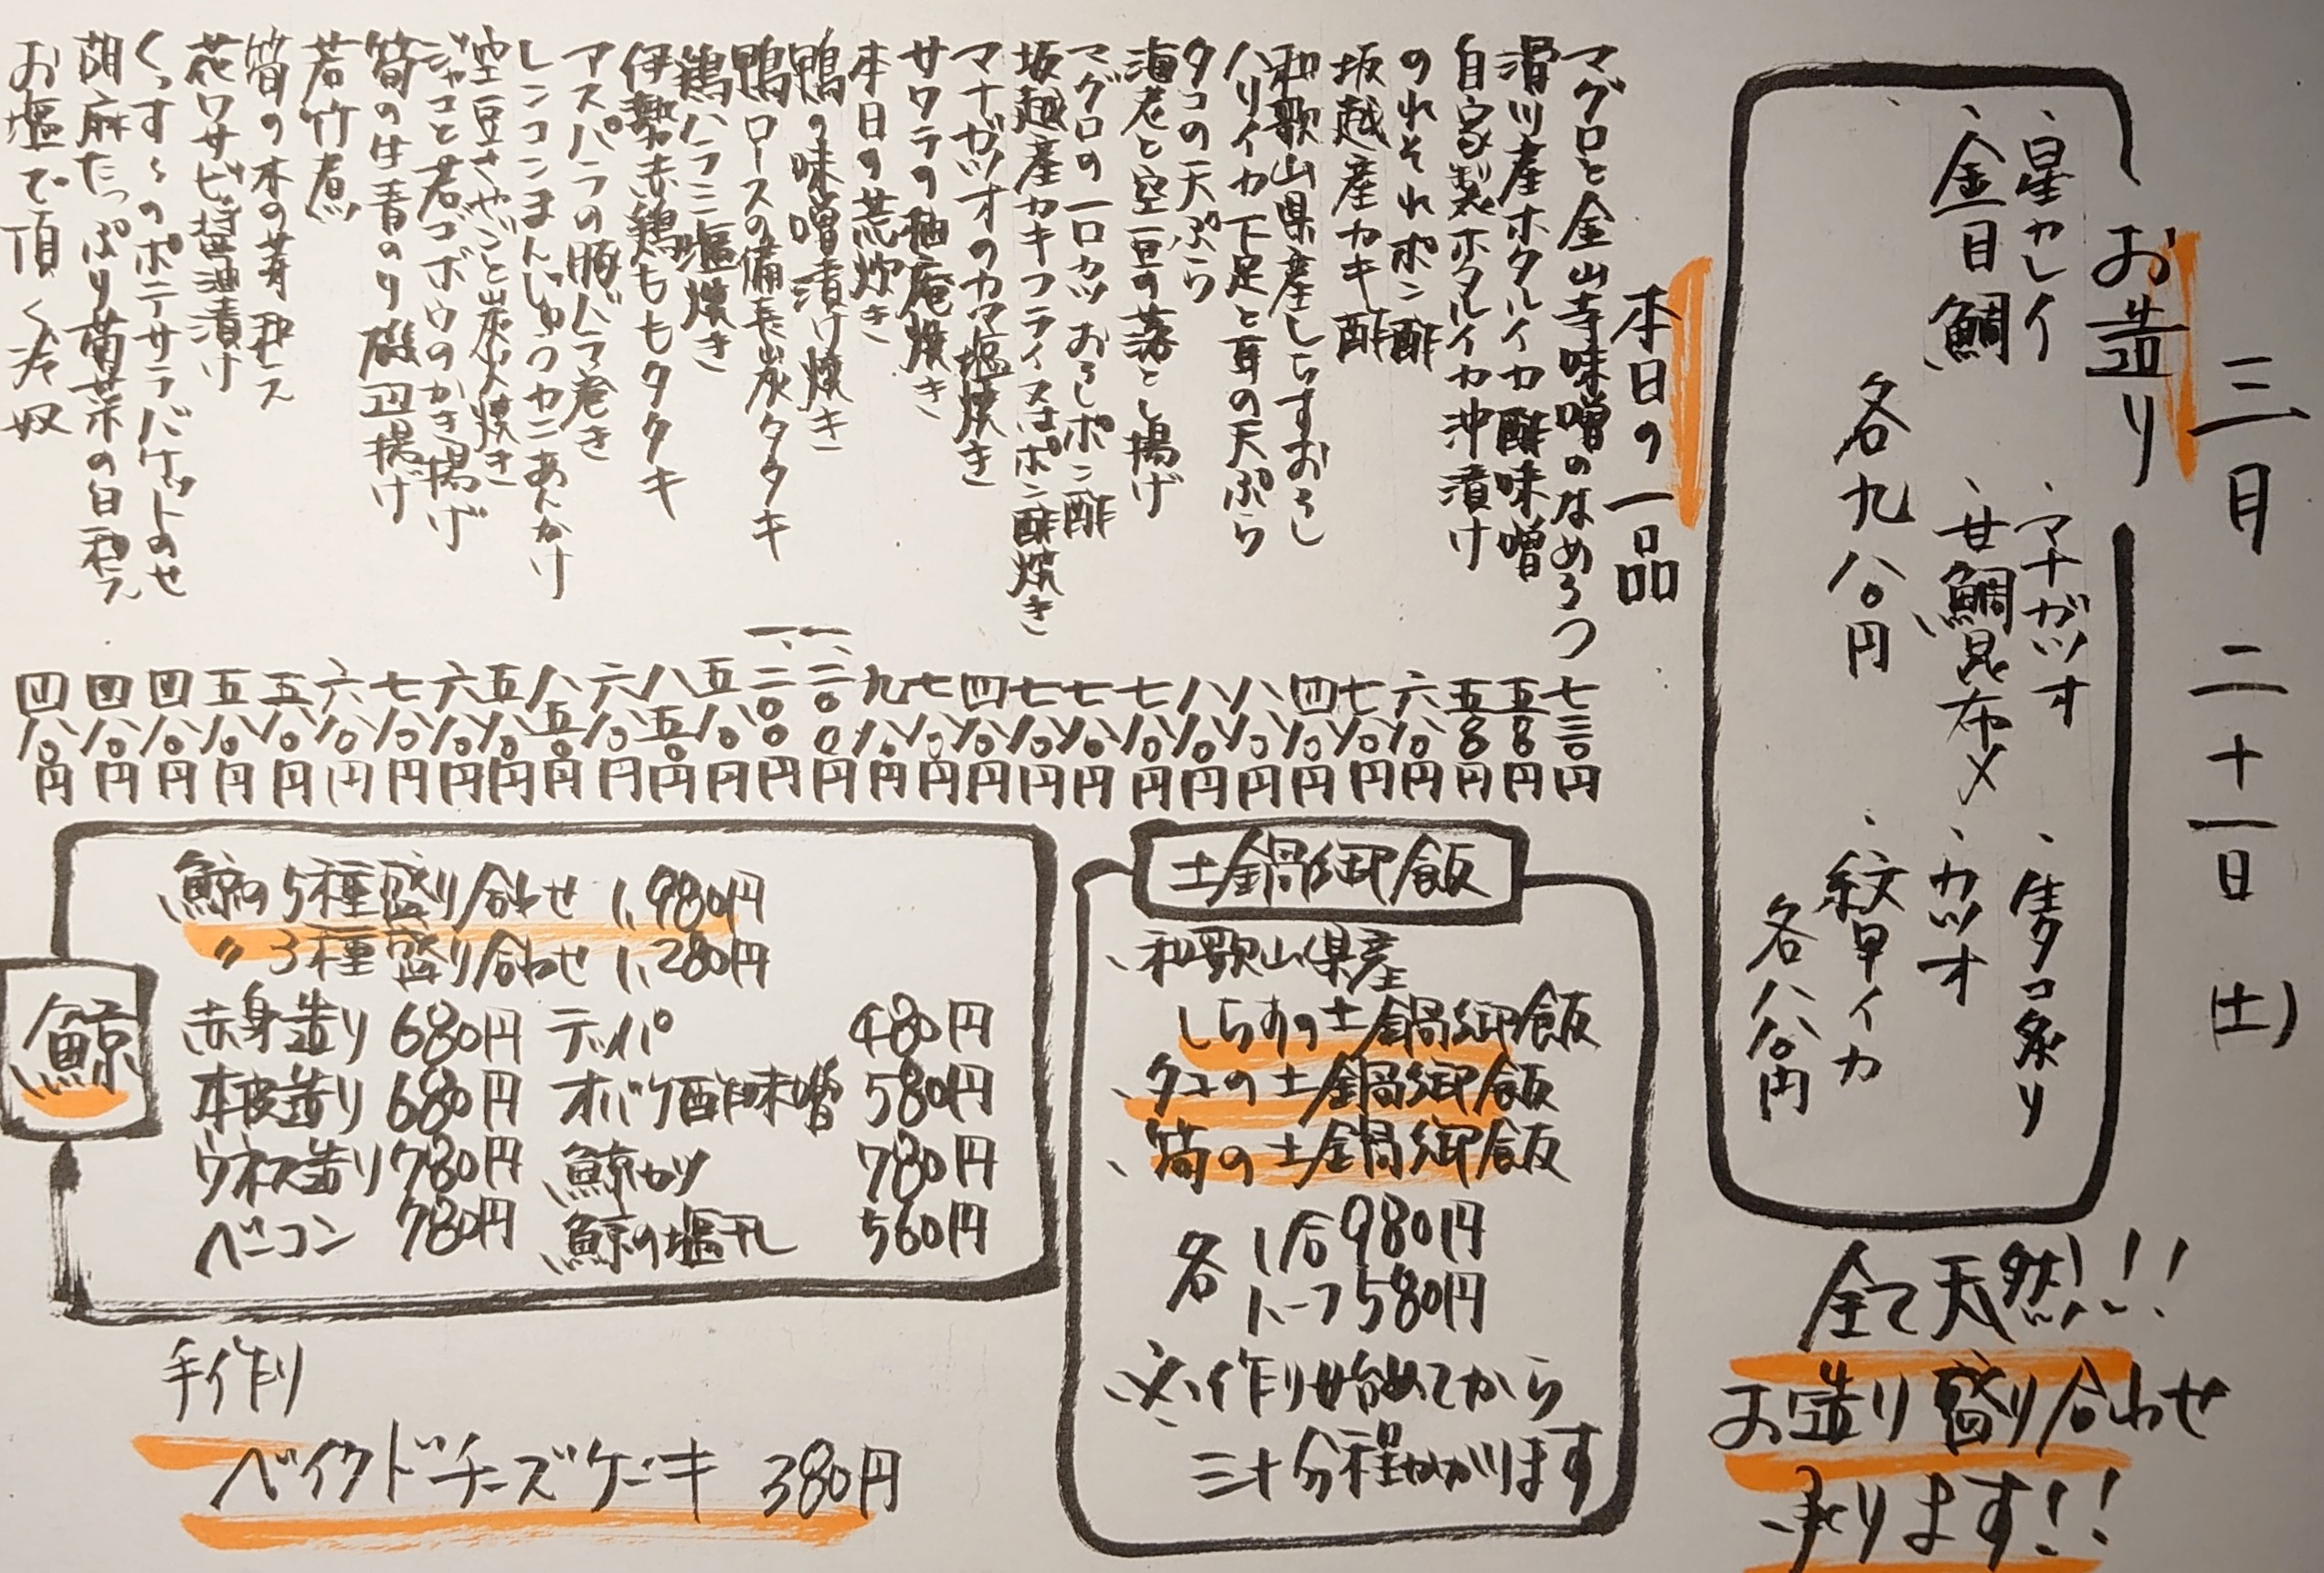 三月二十一日(土)
お造り
、星カレイ
、マナガツオ
、生タコ炙り
、金目鯛
、甘鯛昆布〆
、カツオ
、紋甲イカ
各九八〇円
各八八〇円
全て天然!!
お造り盛り合わせ
承ります!!
本日の一品
マグロと金山寺味噌のなめろう 七三〇円
滑川産ホタルイカ酢味噌 五八〇円
自家製ホタルイカ沖漬け 五八〇円
のれそれポン酢 六八〇円
坂越産カキ酢 七八〇円
和歌山県産しらすおろし 四八〇円
ハリイカ下足と耳の天ぷら 八八〇円
タコの天ぷら 八八〇円
海老と空豆の落とし揚げ 七八〇円
マグロの一口カツおろしポン酢 七八〇円
坂越産カキフライ又はポン酢焼き 七八〇円
マナガツオのカマ塩焼き 四八〇円
サワラの柚庵焼き 七八〇円
本日の荒炊き 九八〇円
鴨の味噌漬け焼き 一、二〇〇円
鴨ロースの備長炭タタキ 一、二〇〇円
鶏ハラミ塩焼き 五八〇円
伊勢赤鶏ももタタキ 八五〇円
アスパラの豚バラ巻き 六八〇円
レンコンまんじゅうカニあんかけ 八五〇円
空豆さやごと炭火焼き 五八〇円
ジャコと若ゴボウのかき揚げ 六八〇円
筍の生青のり磯辺揚げ 七八〇円
若竹煮 六八〇円
筍の木の芽和え 五八〇円
花ワサビ醤油漬け 五八〇円
くっすんのポテサラバケットのせ 四八〇円
胡麻たっぷり菊菜の白和え 四八〇円
お塩で頂く冷奴 四八〇円
土鍋御飯
、和歌山県産
しらすの土鍋御飯
、タコの土鍋御飯
、筍の土鍋御飯
各 1合980円
ハーフ580円
※作り始めてから
三十分程かかります
鯨
鯨の5種盛り合わせ 1,980円
〃3種盛り合わせ 1,280円
赤身造り 680円 テッパ 480円
本皮造り 680円 オバケ酢味噌 580円
ウネス造り 780円 鯨カツ 780円
ベーコン 780円 鯨の塩干し 560円
手作り
ベイクドチーズケーキ 380円